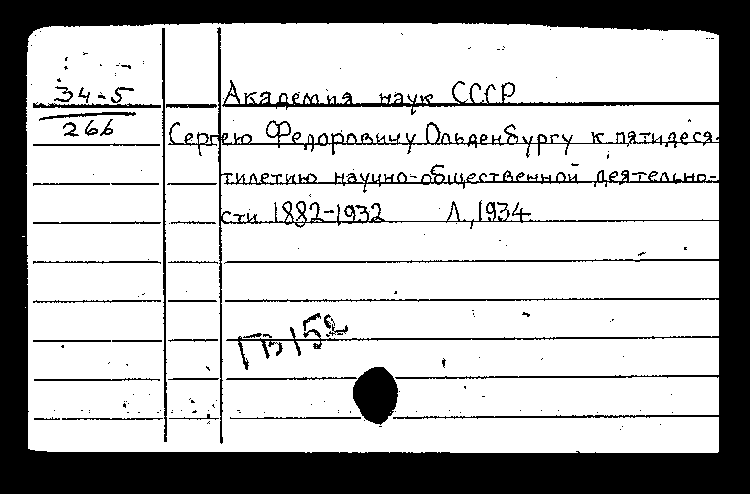 34-5
266
Академия наук СССР
Сергею Федоровичу Ольденбургу к пятидеся-
тилетию научно-общественной деятельно-
сти 1882-1932 Л., 1934
ГВ 152